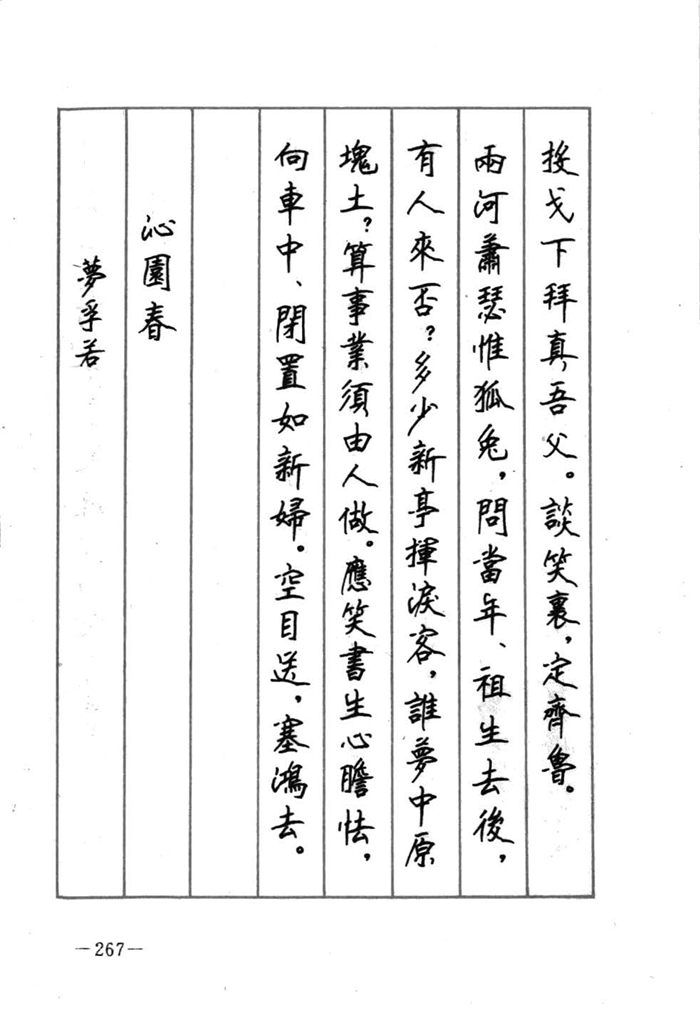 投戈下拜真吾父。談笑裏，定齊魯。
兩河蕭瑟惟狐兔，問當年、祖生去後，
有人來否？多少新亭揮淚客，誰夢中原
塊土？算事業須由人做。應笑書生心膽怯，
向車中、閉置如新婦。空目送，塞鴻去。
沁園春
夢孚若
—267—